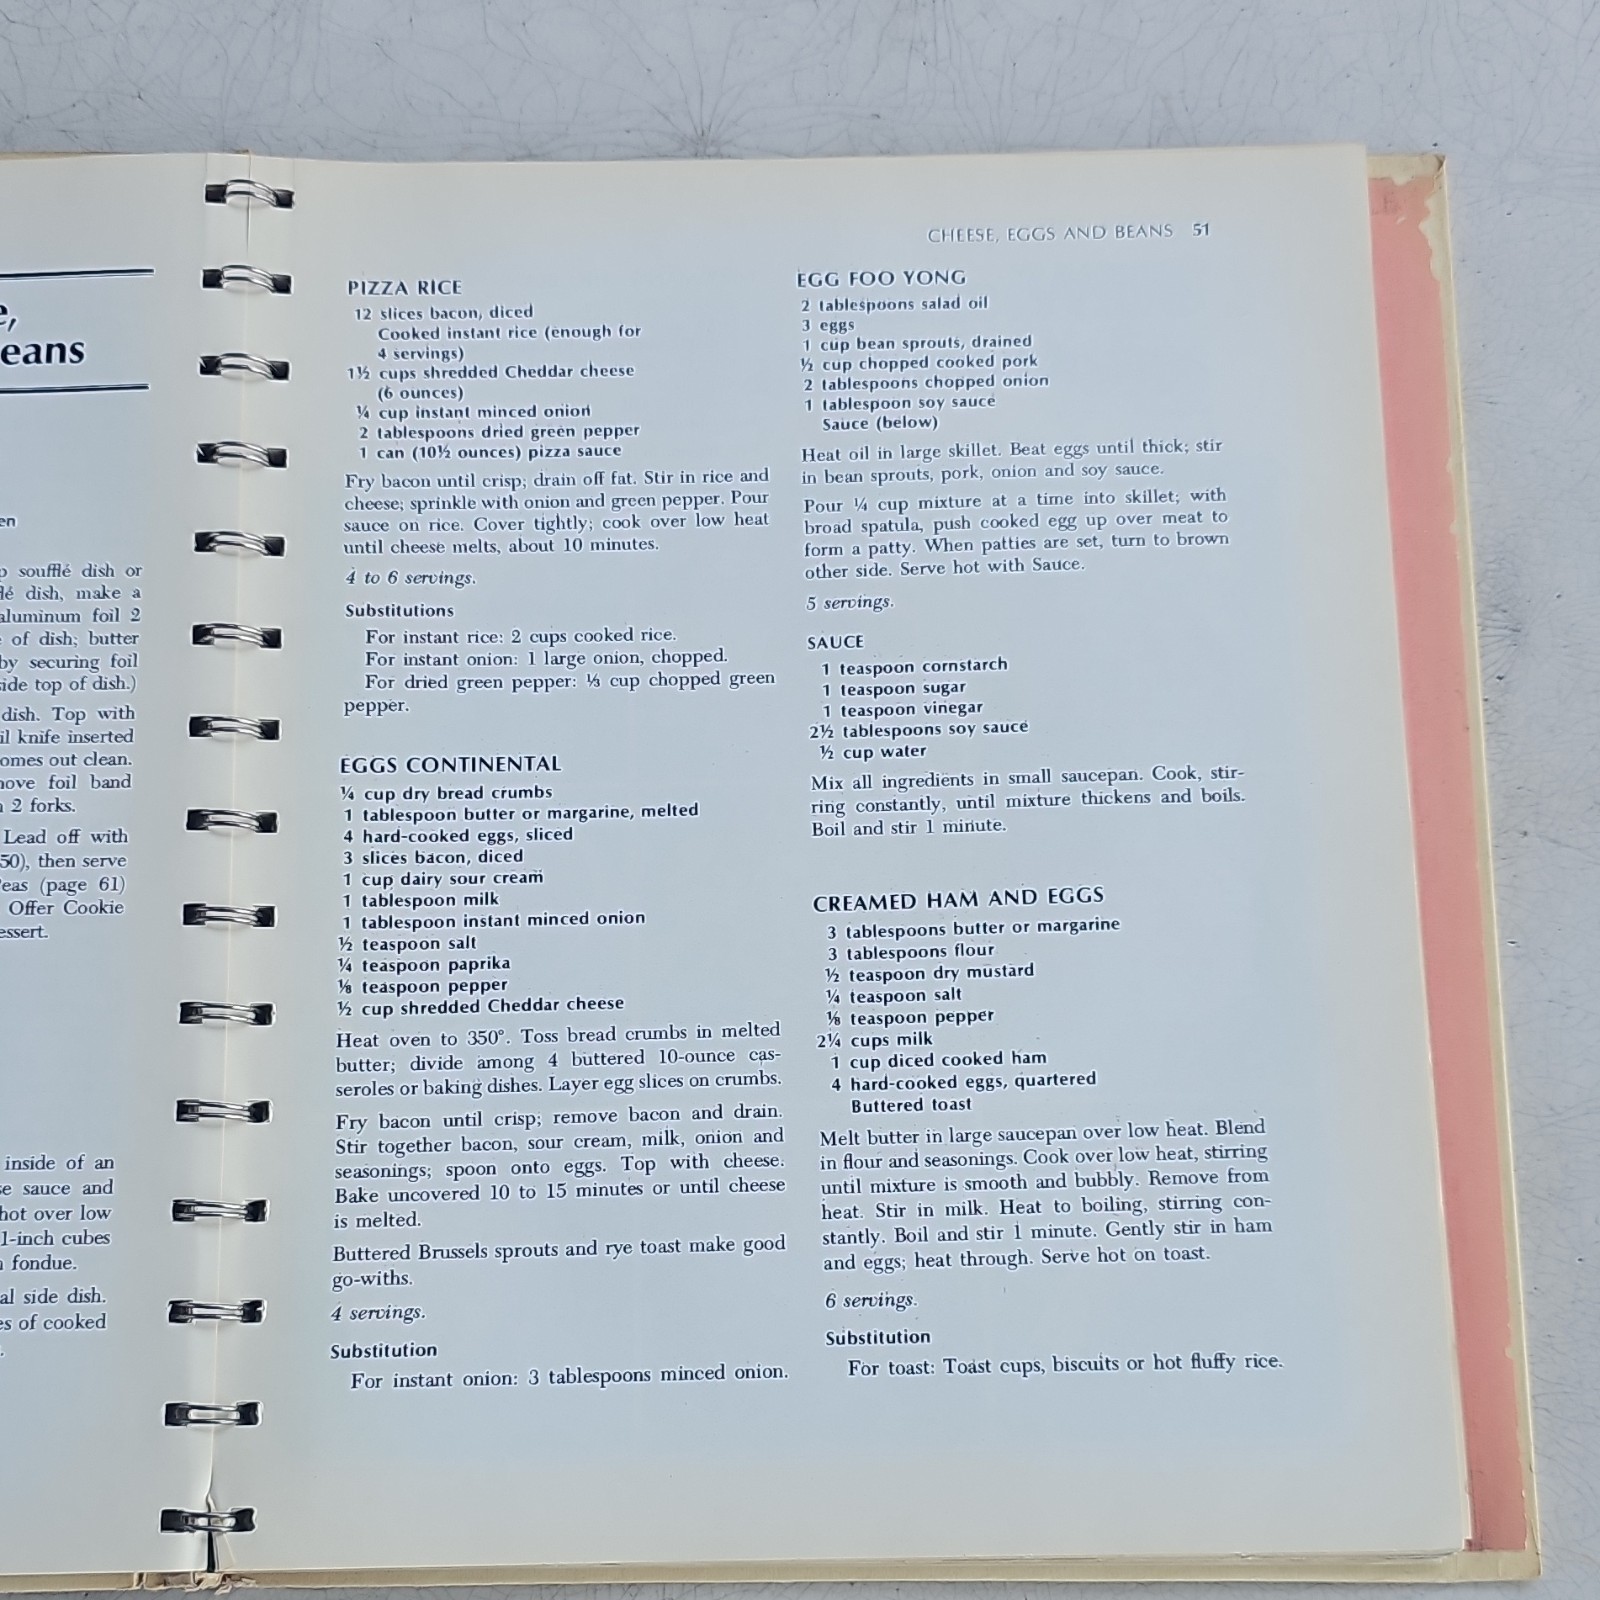 e,
eans
en
p soufflé dish or
lé dish, make a
aluminum foil 2
of dish; butter
by securing foil
side top of dish.)
dish. Top with
il knife inserted
omes out clean.
nove foil band
2 forks.
Lead off with
50), then serve
eas (page 61)
Offer Cookie
essert.
inside of an
se sauce and
hot over low
1-inch cubes
fondue.
al side dish.
es of cooked
CHEESE, EGGS AND BEANS 51
PIZZA RICE
12 slices bacon, diced
Cooked instant rice (enough for
4 servings)
1½ cups shredded Cheddar cheese
(6 ounces)
¼ cup instant minced onion
2 tablespoons dried green pepper
1 can (10½ ounces) pizza sauce
Fry bacon until crisp; drain off fat. Stir in rice and
cheese; sprinkle with onion and green pepper. Pour
sauce on rice. Cover tightly; cook over low heat
until cheese melts, about 10 minutes.
4 to 6 servings.
Substitutions
For instant rice: 2 cups cooked rice.
For instant onion: 1 large onion, chopped.
For dried green pepper: ⅓ cup chopped green
pepper.
EGGS CONTINENTAL
¼ cup dry bread crumbs
1 tablespoon butter or margarine, melted
4 hard-cooked eggs, sliced
3 slices bacon, diced
1 cup dairy sour cream
1 tablespoon milk
1 tablespoon instant minced onion
½ teaspoon salt
¼ teaspoon paprika
⅛ teaspoon pepper
½ cup shredded Cheddar cheese
Heat oven to 350°. Toss bread crumbs in melted
butter; divide among 4 buttered 10-ounce cas-
seroles or baking dishes. Layer egg slices on crumbs.
Fry bacon until crisp; remove bacon and drain.
Stir together bacon, sour cream, milk, onion and
seasonings; spoon onto eggs. Top with cheese.
Bake uncovered 10 to 15 minutes or until cheese
is melted.
Buttered Brussels sprouts and rye toast make good
go-withs.
4 servings.
Substitution
For instant onion: 3 tablespoons minced onion.
EGG FOO YONG
2 tablespoons salad oil
3 eggs
1 cup bean sprouts, drained
½ cup chopped cooked pork
2 tablespoons chopped onion
1 tablespoon soy sauce
Sauce (below)
Heat oil in large skillet. Beat eggs until thick; stir
in bean sprouts, pork, onion and soy sauce.
Pour ¼ cup mixture at a time into skillet; with
broad spatula, push cooked egg up over meat to
form a patty. When patties are set, turn to brown
other side. Serve hot with Sauce.
5 servings.
SAUCE
1 teaspoon cornstarch
1 teaspoon sugar
1 teaspoon vinegar
2½ tablespoons soy sauce
½ cup water
Mix all ingredients in small saucepan. Cook, stir-
ring constantly, until mixture thickens and boils.
Boil and stir 1 minute.
CREAMED HAM AND EGGS
3 tablespoons butter or margarine
3 tablespoons flour
½ teaspoon dry mustard
¼ teaspoon salt
⅛ teaspoon pepper
2¼ cups milk
1 cup diced cooked ham
4 hard-cooked eggs, quartered
Buttered toast
Melt butter in large saucepan over low heat. Blend
in flour and seasonings. Cook over low heat, stirring
until mixture is smooth and bubbly. Remove from
heat. Stir in milk. Heat to boiling, stirring con-
stantly. Boil and stir 1 minute. Gently stir in ham
and eggs; heat through. Serve hot on toast.
6 servings.
Substitution
For toast: Toast cups, biscuits or hot fluffy rice.